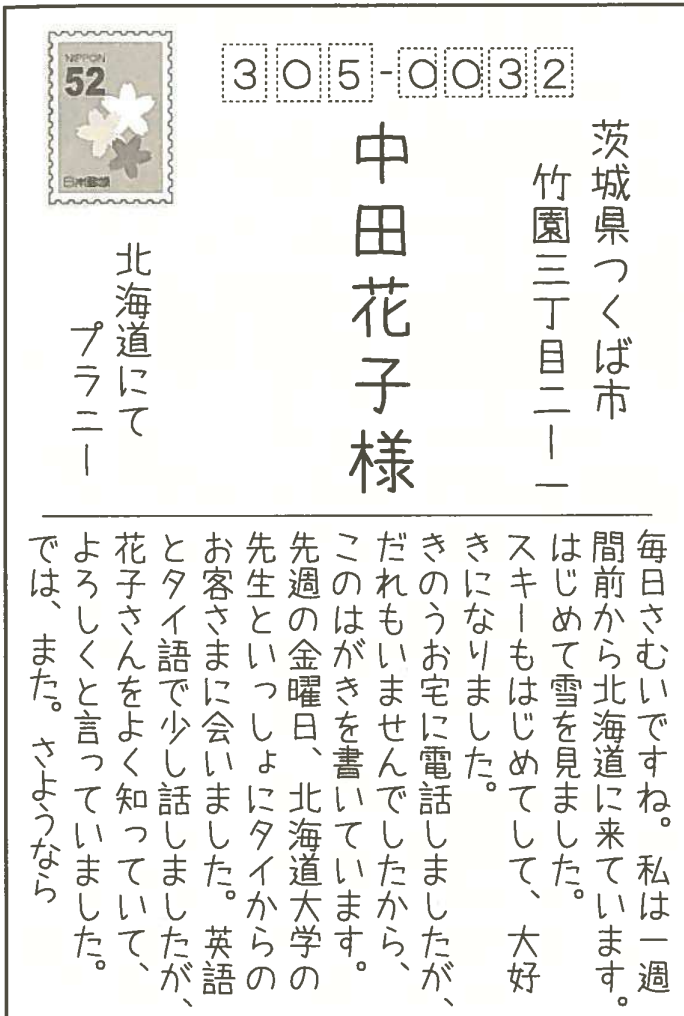 NIPPON
52
日本郵便
305-0032
茨城県つくば市
竹園三丁目二ー一
中田花子様
北海道にて
プラニー
毎日さむいですね。私は一週
間前から北海道に来ています。
はじめて雪を見ました。
スキーもはじめてして、大好
きになりました。
きのうお宅に電話しましたが、
だれもいませんでしたから、
このはがきを書いています。
先週の金曜日、北海道大学の
先生といっしょにタイからの
お客さまに会いました。英語
とタイ語で少し話しましたが、
花子さんをよく知っていて、
よろしくと言っていました。
では、また。さようなら